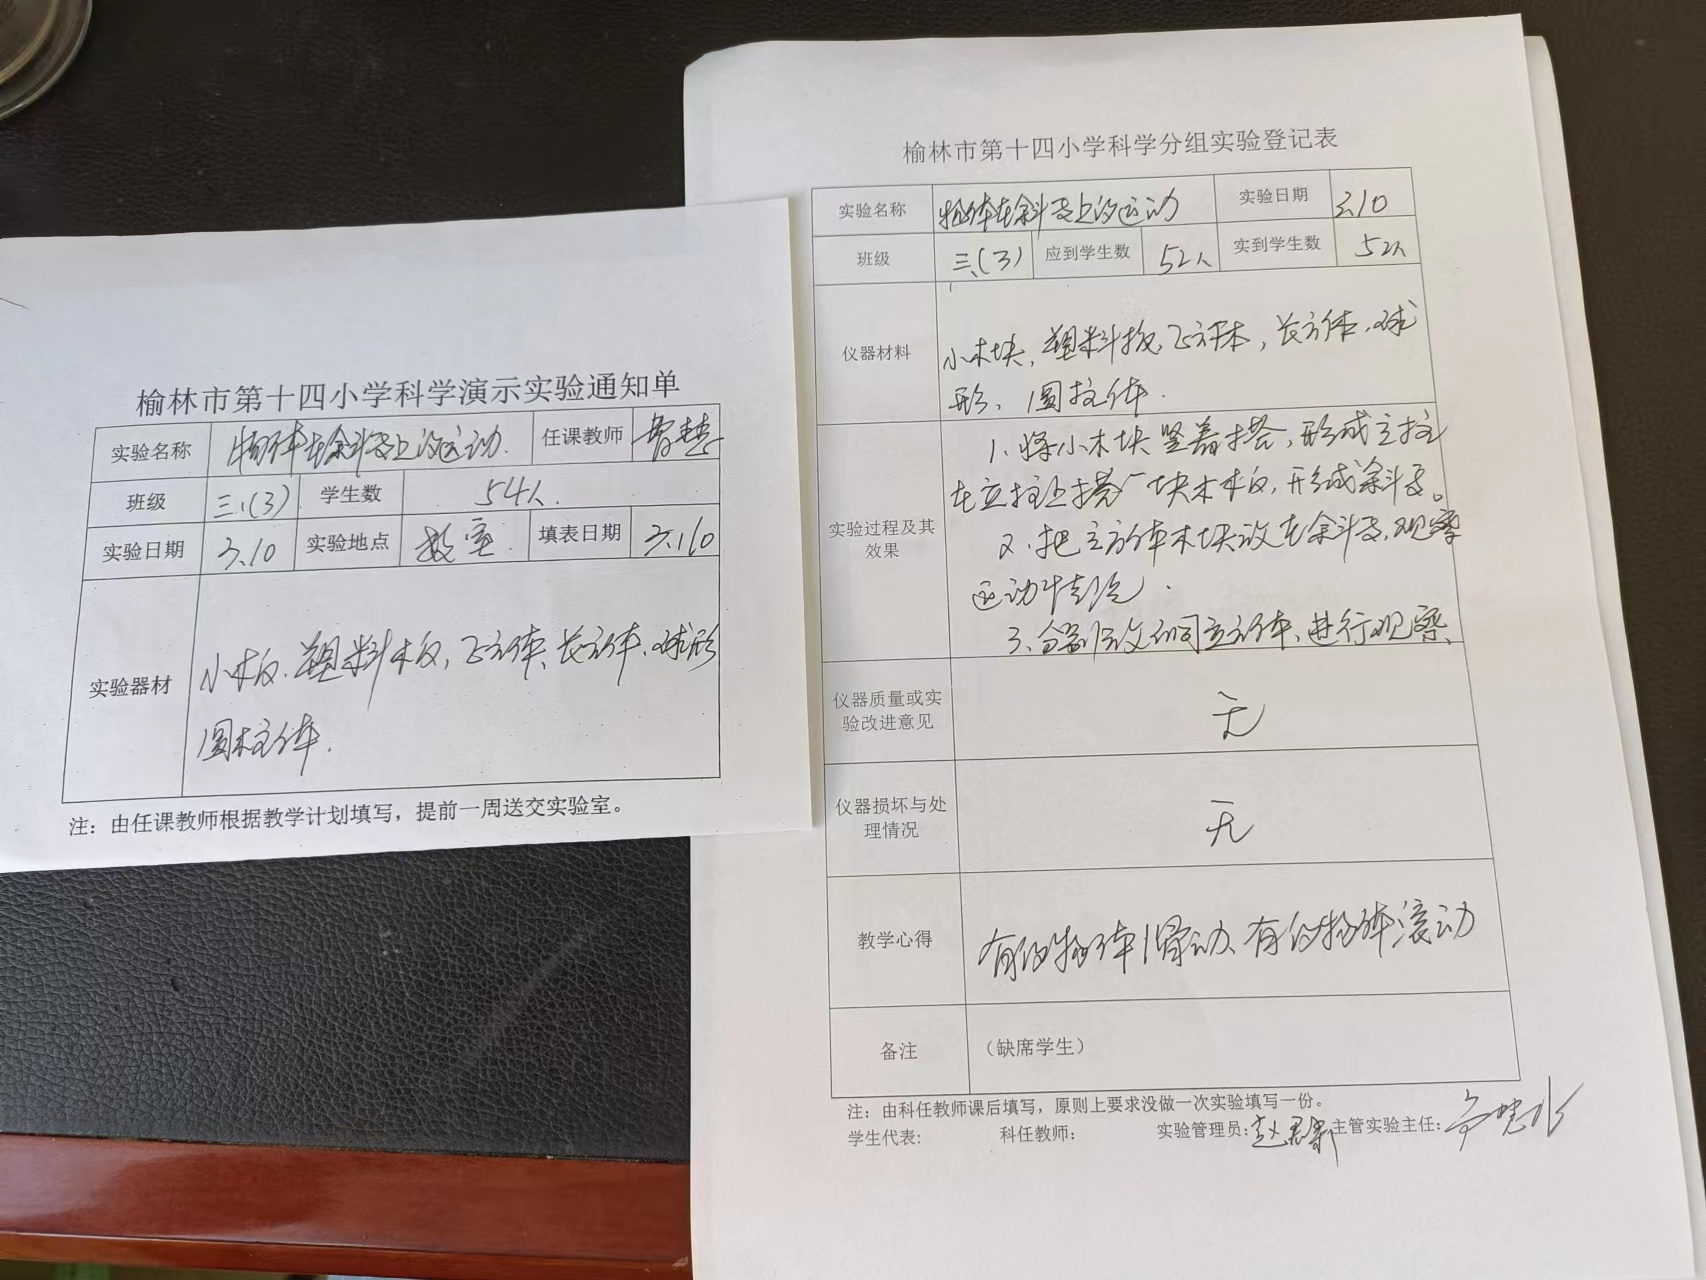 榆林市第十四小学科学演示实验通知单
实验名称 物体在斜面上的运动. 任课教师
班级 三.(3) 学生数 54人.
实验日期 3.10 实验地点 教室. 填表日期 3.10
实验器材 小木板.塑料木板,正方体、长方体、球形
圆柱体.
注：由任课教师根据教学计划填写，提前一周送交实验室。
榆林市第十四小学科学分组实验登记表
实验名称 物体在斜面上的运动 实验日期 3.10
班级 三.(3) 应到学生数 52人 实到学生数 52人
仪器材料 小木块,塑料板,正方体,长方体.球
形,圆柱体.
实验过程及其
效果
1.将小木块竖着搭,形成立柱
在立柱上搭一块木板,形成斜面。
2.把立方体木块放在斜面,观察
运动情况.
3.分别放不同立方体、进行观察.
仪器质量或实
验改进意见
无
仪器损坏与处
理情况
无
教学心得 有的物体滑动、有的物体滚动
备注 （缺席学生）
注：由科任教师课后填写，原则上要求没做一次实验填写一份。
学生代表: 科任教师: 实验管理员: 主管实验主任: